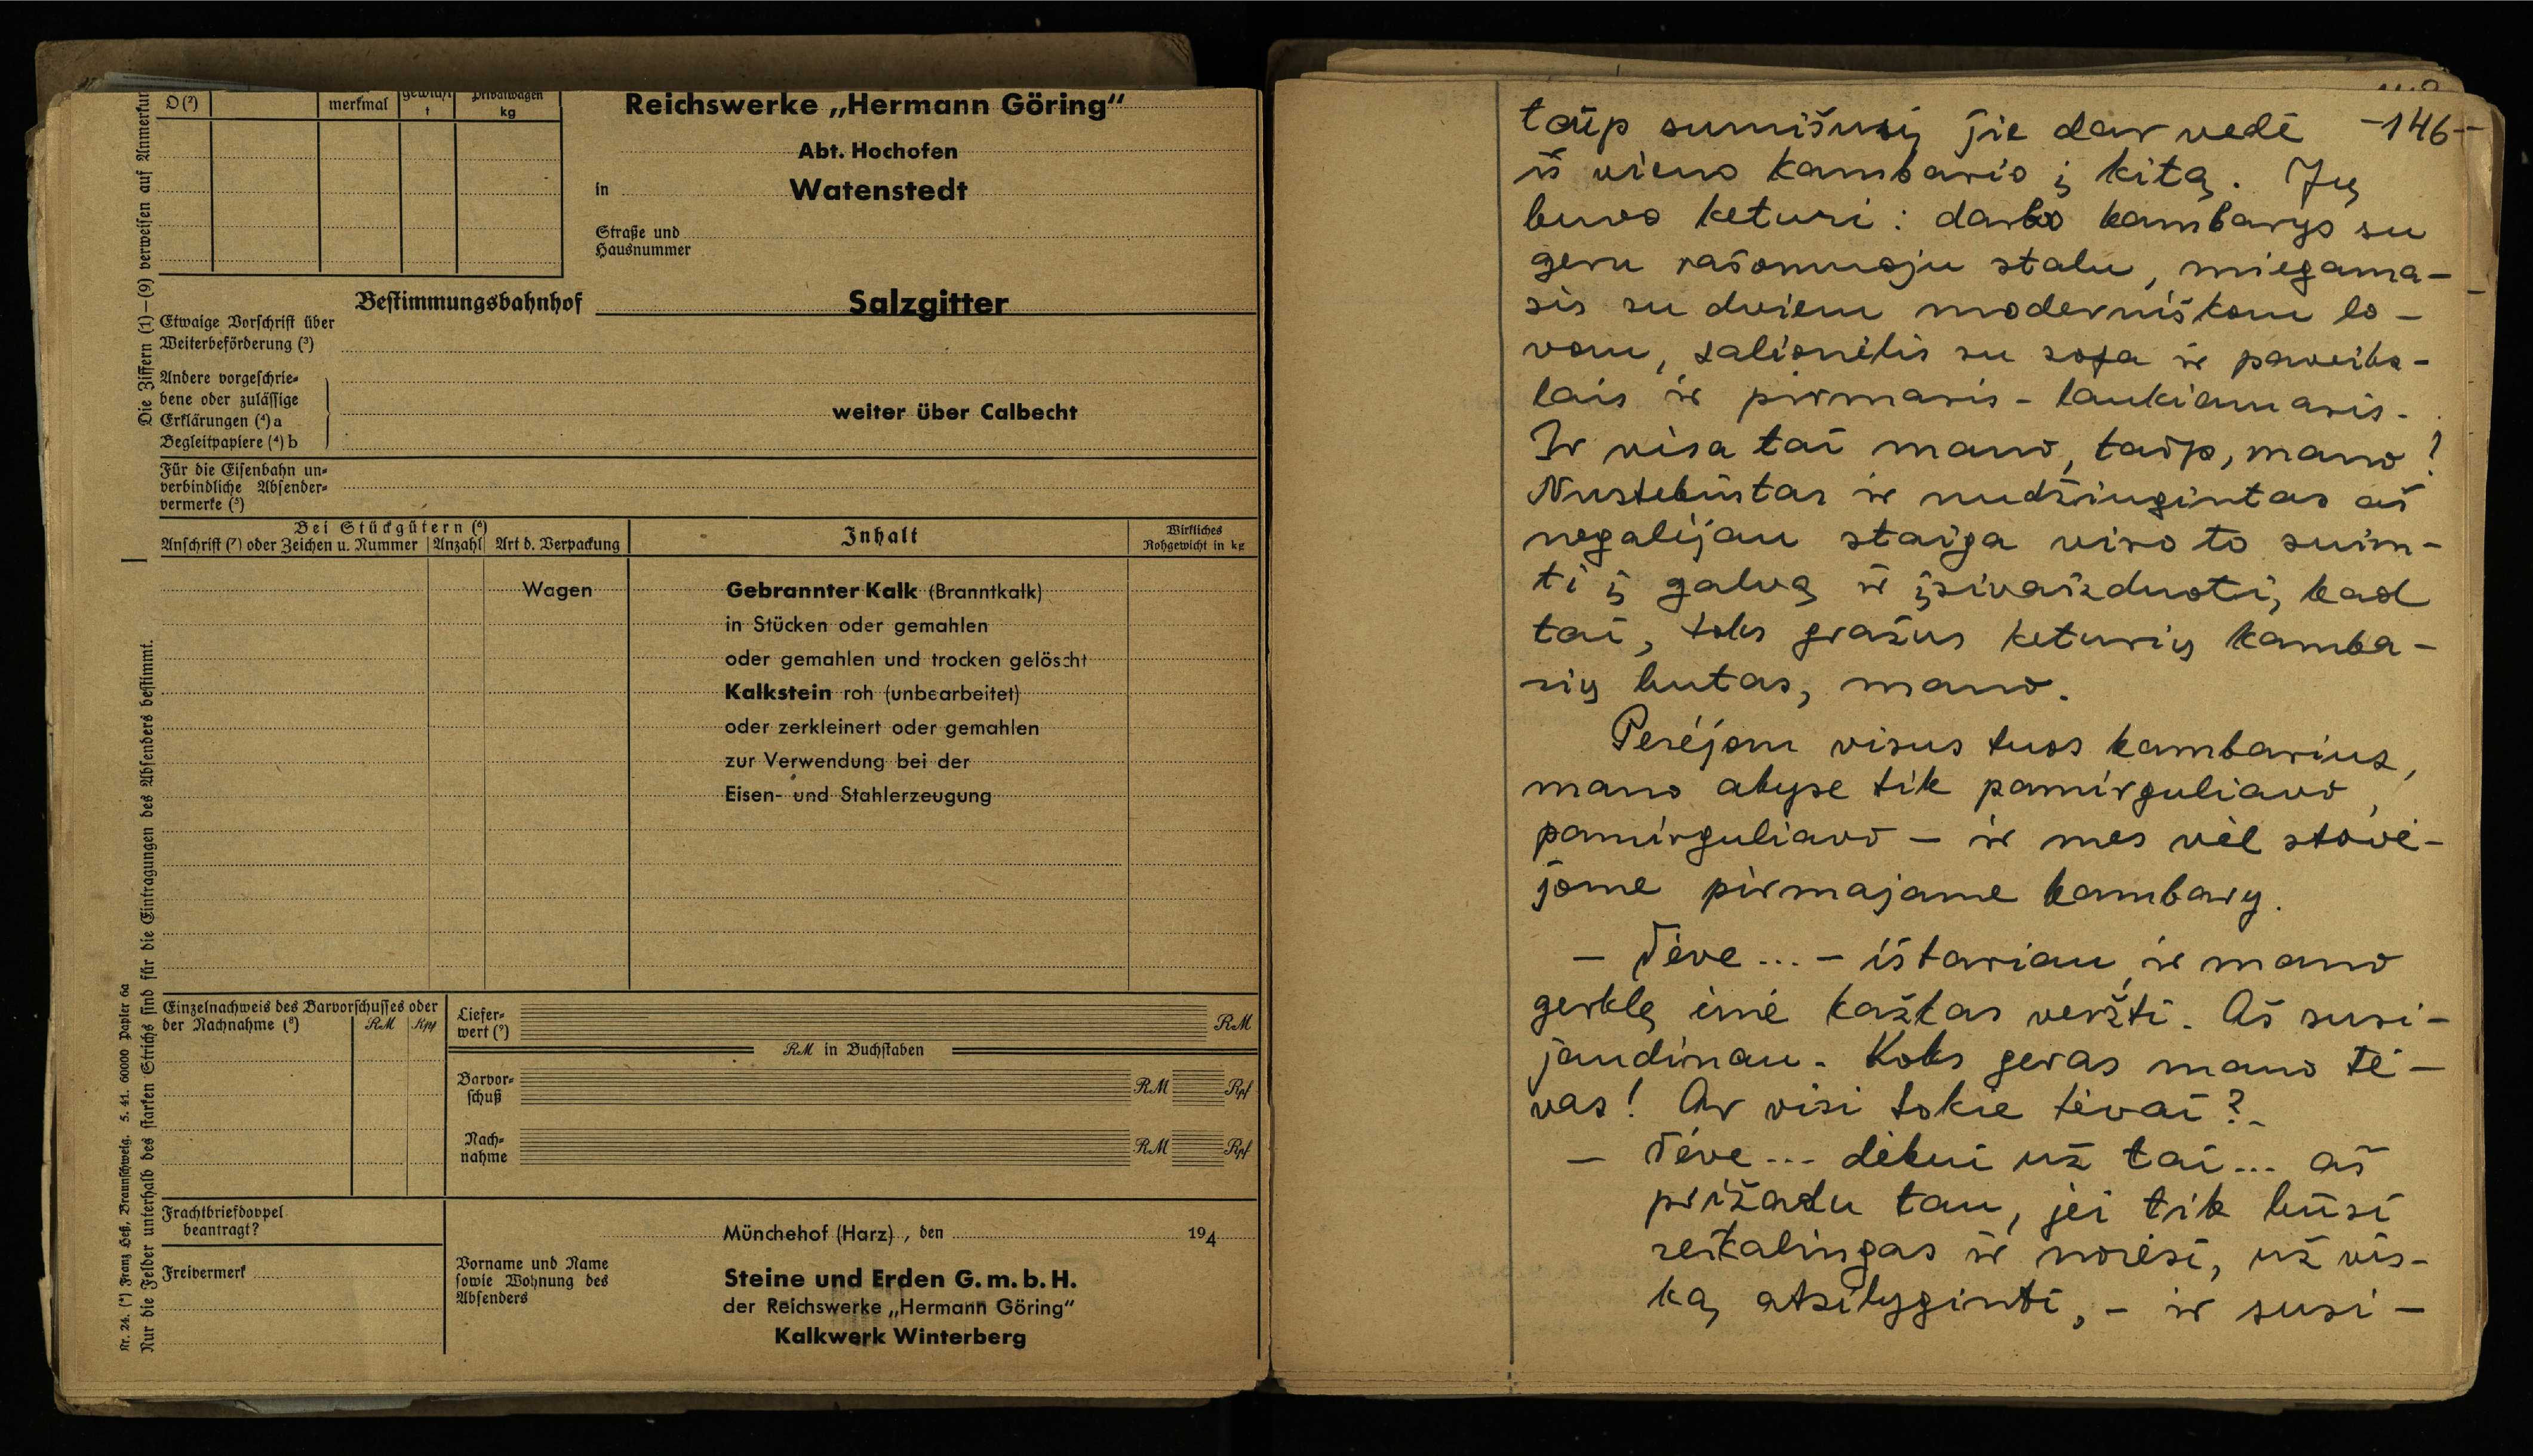 D (²)
merkmal
gewicht
t
Privatwagen
kg
Reichswerke „Hermann Göring“
Abt. Hochofen
in Watenstedt
Straße und
Hausnummer
Bestimmungsbahnhof Salzgitter
Etwaige Vorschrift über
Weiterbeförderung (³)
Andere vorgeschrie-
bene oder zulässige
Erklärungen (⁴) a
Begleitpapiere (⁴) b
weiter über Calbecht
Für die Eisenbahn un-
verbindliche Absender-
vermerke (⁵)
Bei Stückgütern (⁶)
Anschrift (⁷) oder Zeichen u. Nummer Anzahl Art d. Verpackung
Inhalt
Wirkliches
Rohgewicht in kg
Wagen
Gebrannter Kalk (Branntkalk)
in Stücken oder gemahlen
oder gemahlen und trocken gelöscht
Kalkstein roh (unbearbeitet)
oder zerkleinert oder gemahlen
zur Verwendung bei der
Eisen- und Stahlerzeugung
Einzelnachweis des Barvorschusses oder
der Nachnahme (⁸) RM Rpf
Liefer-
wert (⁹) RM
RM in Buchstaben
Barvor-
schuß RM Rpf
Nach-
nahme RM Rpf
Frachtbriefdoppel
beantragt?
Freivermerk
Münchehof (Harz), den 194
Vorname und Name
sowie Wohnung des
Absenders
Steine und Erden G. m. b. H.
der Reichswerke „Hermann Göring“
Kalkwerk Winterberg
Die Ziffern (1)—(9) verweisen auf Anmerkun
Nur die Felder unterhalb des starken Strichs sind für die Eintragungen des Absenders bestimmt.
Nr. 24. (*) Franz Heß, Braunschweig. 5. 41. 60000 Papier 6a
-146-
taip sumišusį jie dar vedė
iš vieno kambario į kitą. Jų
buvo keturi: darbo kambarys su
geru rašomuoju stalu, miegama-
sis su dviem moderniškom lo-
vom, salionėlis su sofa ir paveiks-
lais ir pirmasis - laukiamasis.
Ir visa tai mano, taip, mano!
Nustebintas ir nudžiugintas aš
negalėjau staiga viso to suim-
ti į galvą ir įsivaizduoti, kad
tai, toks gražus keturių kamba-
rių butas, mano.
Perėjom visus tuos kambarius,
mano akyse tik pamirguliavo,
pamirguliavo – ir mes vėl stovė-
jome pirmajame kambary.
– Tėve... – ištariau, ir mano
gerklę ėmė kažkas veržti. Aš susi-
jaudinau. Koks geras mano tė-
vas! Ar visi tokie tėvai?
– Tėve... dėkui už tai... aš
prižadu tau, jei tik būsi
reikalingas ir norėsi, už vis-
ką atsilyginti, – ir susi-